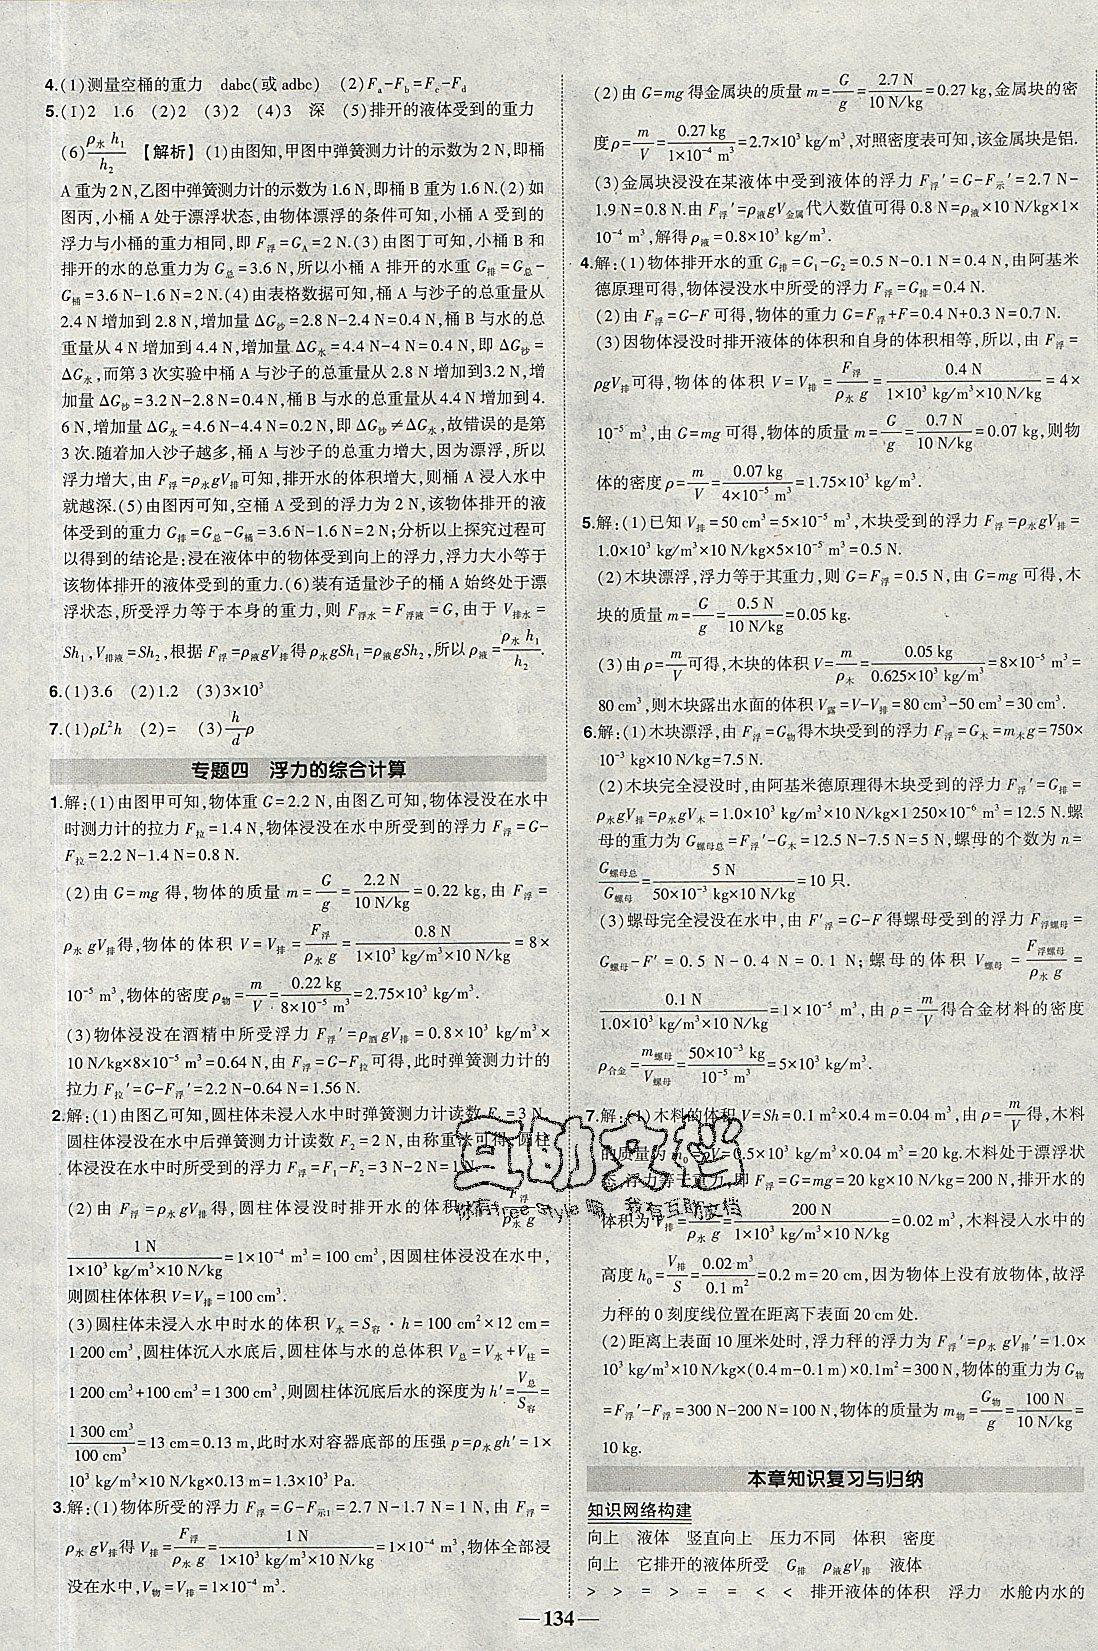 4.(1)测量空桶的重力 dabc(或 adbc) (2)Fa-Fb=Fc-Fd
5.(1)2 1.6 (2)2 (3)2 (4)3 深 (5)排开的液体受到的重力
(6)ρ水h1/h2 【解析】(1)由图知,甲图中弹簧测力计的示数为 2 N,即桶
A 重为 2 N,乙图中弹簧测力计的示数为 1.6 N,即桶 B 重为 1.6 N.(2)如
图丙,小桶 A 处于漂浮状态,由物体漂浮的条件可知,小桶 A 受到的
浮力与小桶的重力相同,即 F浮=GA=2 N.(3)由图丁可知,小桶 B 和
排开的水的总重力为 G总=3.6 N,所以小桶 A 排开的水重 G排=G总-
G桶=3.6 N-1.6 N=2 N.(4)由表格数据可知,桶 A 与沙子的总重量从
2.4 N 增加到 2.8 N,增加量 ΔG沙=2.8 N-2.4 N=0.4 N,桶 B 与水的总
重量从 4 N 增加到 4.4 N,增加量 ΔG水=4.4 N-4 N=0.4 N,即 ΔG沙=
ΔG水,而第 3 次实验中桶 A 与沙子的总重量从 2.8 N 增加到3.2 N,增
加量 ΔG沙=3.2 N-2.8 N=0.4 N,桶 B 与水的总重量从 4.4 N 增加到4.
6 N,增加量 ΔG水=4.6 N-4.4 N=0.2 N,即 ΔG沙≠ΔG水,故错误的是第
3 次.随着加入沙子越多,桶 A 与沙子的总重力增大,因为漂浮,所以
浮力增大,由 F浮=ρ水gV排可知,排开水的体积增大,桶 A 浸入水中
就越深.(5)由图丙可知,空桶 A 受到的浮力为 2 N,该物体排开的液
体受到的重力 G排=G总-G桶=3.6 N-1.6 N=2 N;分析以上探究过程可
以得到的结论是:浸在液体中的物体受到向上的浮力,浮力大小等于
该物体排开的液体受到的重力.(6)装有适量沙子的桶 A 始终处于漂
浮状态,所受浮力等于本身的重力,则 F浮水=F浮液=G,由于 V排水=
Sh1,V排液=Sh2,根据 F浮=ρ液gV排得 ρ水gSh1=ρ液gSh2,所以 ρ液=ρ水h1/h2.
6.(1)3.6 (2)1.2 (3)3×10³
7.(1)ρL²h (2)= (3)h/d ρ
专题四 浮力的综合计算
1.解:(1)由图甲可知,物体重 G=2.2 N,由图乙可知,物体浸没在水中
时测力计的拉力 F拉=1.4 N,物体浸没在水中所受到的浮力 F浮=G-
F拉=2.2 N-1.4 N=0.8 N.
(2)由 G=mg 得,物体的质量 m=G/g=2.2 N/10 N/kg=0.22 kg,由 F浮=
ρ水gV排得,物体的体积 V=V排=F浮/ρ水g=0.8 N/1×10³ kg/m³×10 N/kg=8×
10⁻⁵ m³,物体的密度 ρ物=m/V=0.22 kg/8×10⁻⁵ m³=2.75×10³ kg/m³.
(3)物体浸没在酒精中所受浮力 F浮′=ρ酒gV排=0.8×10³ kg/m³×
10 N/kg×8×10⁻⁵ m³=0.64 N,由 F浮=G-F拉可得,此时弹簧测力计的
拉力 F拉′=G-F浮′=2.2 N-0.64 N=1.56 N.
2.解:(1)由图乙可知,圆柱体未浸入水中时弹簧测力计读数 F1=3 N,
圆柱体浸没在水中后弹簧测力计读数 F2=2 N,由称重法可得,圆柱
体浸没在水中时所受到的浮力 F浮=F1-F2=3 N-2 N=1 N.
(2)由 F浮=ρ水gV排得,圆柱体浸没时排开水的体积 F浮/ρ水g
1 N/1×10³ kg/m³×10 N/kg=1×10⁻⁴ m³=100 cm³,因圆柱体浸没在水中,
则圆柱体体积 V=V排=100 cm³.
(3)圆柱体未浸入水中时水的体积 V水=S容·h=100 cm²×12 cm=
1 200 cm³,圆柱体沉入水底后,圆柱体与水的总体积 V总=V水+V柱=
1 200 cm³+100 cm³=1 300 cm³,则圆柱体沉底后水的深度为 h′=V总/S容=
1 300 cm³/100 cm²=13 cm=0.13 m,此时水对容器底部的压强 p=ρ水gh′=1×
10³ kg/m³×10 N/kg×0.13 m=1.3×10³ Pa.
3.解:(1)物体所受的浮力 F浮=G-F示1=2.7 N-1.7 N=1 N,由 F浮=
ρ水gV排得 V排=F浮/ρ水g=1 N/1×10³ kg/m³×10 N/kg=1×10⁻⁴ m³,物体全部浸
没在水中,V物=V排=1×10⁻⁴ m³.
(2)由 G=mg 得金属块的质量 m=G/g=2.7 N/10 N/kg=0.27 kg,金属块的密
度 ρ=m/V=0.27 kg/1×10⁻⁴ m³=2.7×10³ kg/m³,对照密度表可知,该金属块是铝.
(3)金属块浸没在某液体中受到液体的浮力 F浮′=G-F示′=2.7 N-
1.9 N=0.8 N.由 F浮′=ρ液gV金属代人数值可得 0.8 N=ρ液×10 N/kg×1×
10⁻⁴ m³,解得 ρ液=0.8×10³ kg/m³.
4.解:(1)物体排开水的重 G排=G1-G2=0.5 N-0.1 N=0.4 N,由阿基米
德原理可得,物体浸没水中所受的浮力 F浮=G排=0.4 N.
(2)由 F浮=G-F 可得,物体的重力 G=F浮+F=0.4 N+0.3 N=0.7 N.
(3)因物体浸没时排开液体的体积和自身的体积相等,所以,由 F浮=
ρgV排可得,物体的体积 V=V排=F浮/ρ水g=0.4 N/1×10³ kg/m³×10 N/kg=4×
10⁻⁵ m³,由 G=mg 可得,物体的质量 m=G/g=0.7 N/10 N/kg=0.07 kg,则物
体的密度 ρ=m/V=0.07 kg/4×10⁻⁵ m³=1.75×10³ kg/m³.
5.解:(1)已知 V排=50 cm³=5×10⁻⁵ m³,木块受到的浮力 F浮=ρ水gV排=
1.0×10³ kg/m³×10 N/kg×5×10⁻⁵ m³=0.5 N.
(2)木块漂浮,浮力等于其重力,则 G=F浮=0.5 N,由 G=mg 可得,木
块的质量 m=G/g=0.5 N/10 N/kg=0.05 kg.
(3)由 ρ=m/V可得,木块的体积 V=m/ρ木=0.05 kg/0.625×10³ kg/m³=8×10⁻⁵ m³=
80 cm³,则木块露出水面的体积 V露=V-V排=80 cm³-50 cm³=30 cm³.
6.解:(1)木块漂浮,由 F浮=G物得木块受到的浮力 F浮=G木=m木g=750×
10⁻³ kg×10 N/kg=7.5 N.
(2)木块完全浸没水中时,由阿基米德原理得木块受到的浮力 F浮′=G排=
ρ水gV排=ρ水gV木=1.0×10³ kg/m³×10 N/kg×1 250×10⁻⁶ m³=12.5 N.螺
母的重力为 G螺母总=F浮′-G木=12.5 N-7.5 N=5 N,螺母的个数为 n=
G螺母总/G螺母=5 N/50×10⁻³ kg×10 N/kg=10 只.
(3)螺母完全浸没在水中,由 F′浮=G-F 得螺母受到的浮力 F浮螺母=
G螺母-F′=0.5 N-0.4 N=0.1 N;螺母的体积 V螺母=F浮螺母/ρ水g=
0.1 N/1.0×10³ kg/m³×10 N/kg=1×10⁻⁵ m³,由 ρ=m/V得合金材料的密度
ρ合金=m螺母/V螺母=50×10⁻³ kg/10⁻⁵ m³=5×10³ kg/m³.
7.解:(1)木料的体积 V=Sh=0.1 m²×0.4 m=0.04 m³,由 ρ=m/V得,木料
的质量为 0.5×10³ kg/m³×0.04 m³=20 kg.木料处于漂浮状
态,浮力等于重力,即 F浮=G=mg=20 kg×10 N/kg=200 N,排开水的
体积为 V排=F浮/ρ水g=200 N/1×10³ kg/m³×10 N/kg=0.02 m³,木料浸入水中的
高度 h0=V排/S=0.02 m³/0.1 m²=0.2 m=20 cm,因为物体上没有放物体,故浮
力秤的 0 刻度线位置在距离下表面 20 cm 处.
(2)距离上表面 10 厘米处时,浮力秤的浮力为 F浮′=ρ水gV排′=1.0×
10³ kg/m³×10 N/kg×(0.4 m-0.1 m)×0.1m²=300 N,物体的重力为 G物
=F浮′-F浮=300 N-200 N=100 N,物体的质量为 m物=G物/g=100 N/10 N/kg=
10 kg.
本章知识复习与归纳
知识网络构建
向上 液体 竖直向上 压力不同 体积 密度
向上 它排开的液体所受 G排 ρ液gV排 液体
> > = > = = < < 排开液体的体积 浮力 水舱内水的
— 134 —
互助文档